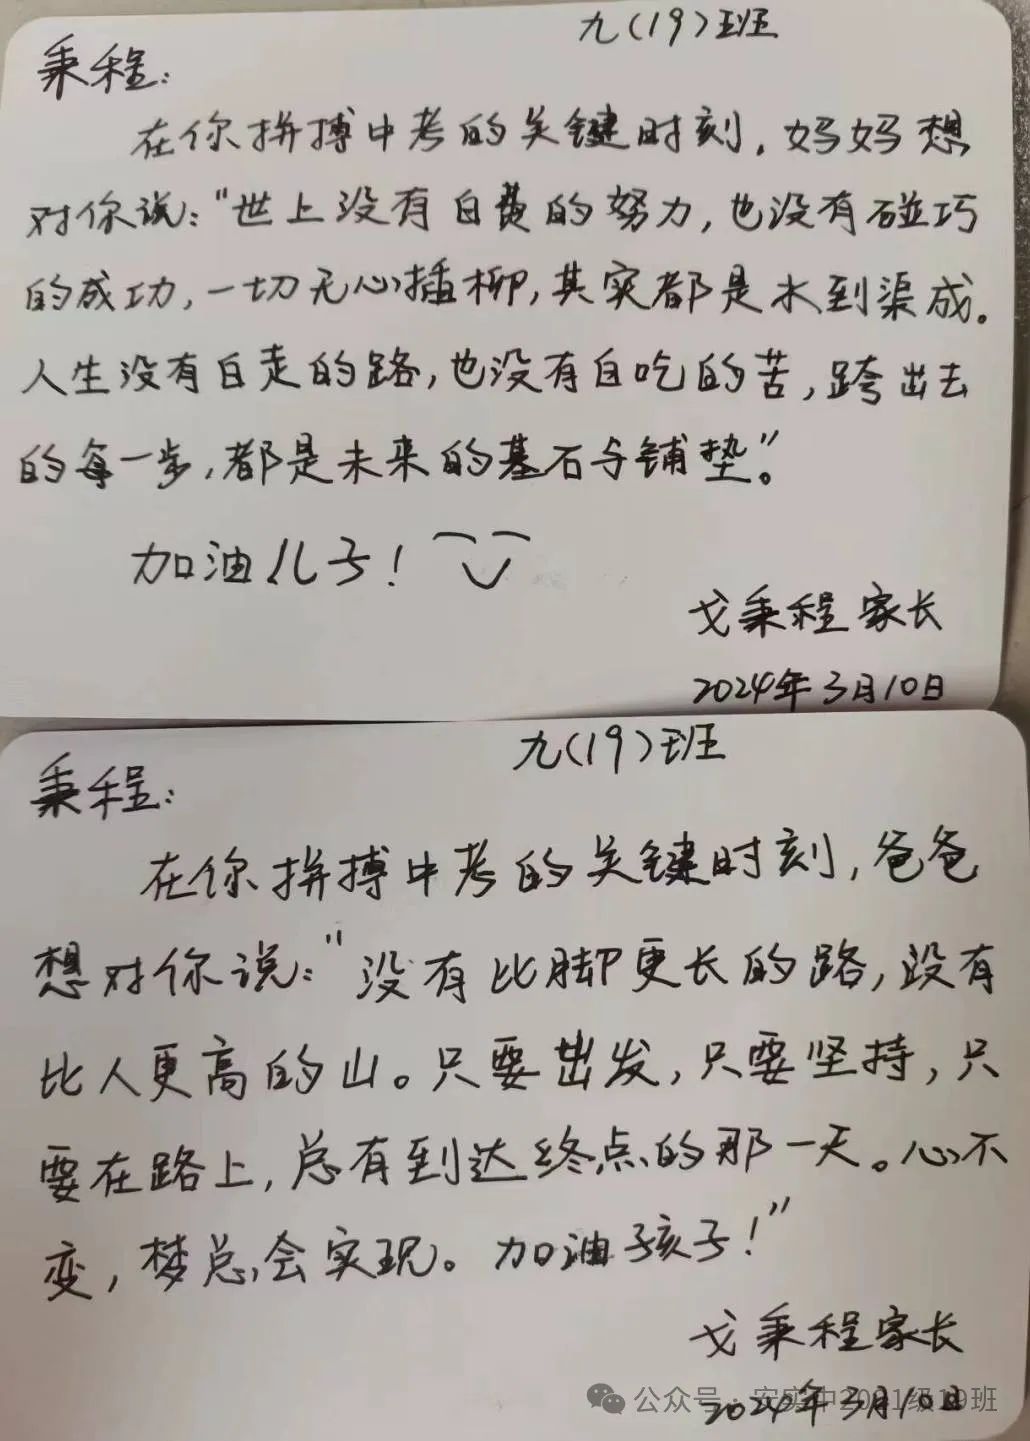 九(19)班
秉程:
在你拼搏中考的关键时刻,妈妈想
对你说:"世上没有白费的努力,也没有碰巧
的成功,一切无心插柳,其实都是水到渠成。
人生没有白走的路,也没有白吃的苦,跨出去
的每一步,都是未来的基石与铺垫"。
加油儿子!
戈秉程家长
2024年3月10日
九(19)班
秉程:
在你拼搏中考的关键时刻,爸爸
想对你说:"没有比脚更长的路,没有
比人更高的山。只要出发,只要坚持,只
要在路上,总有到达终点的那一天。心不
变,梦总会实现。加油孩子!"
戈秉程家长
2024年3月10日
公众号·安实中2021级19班